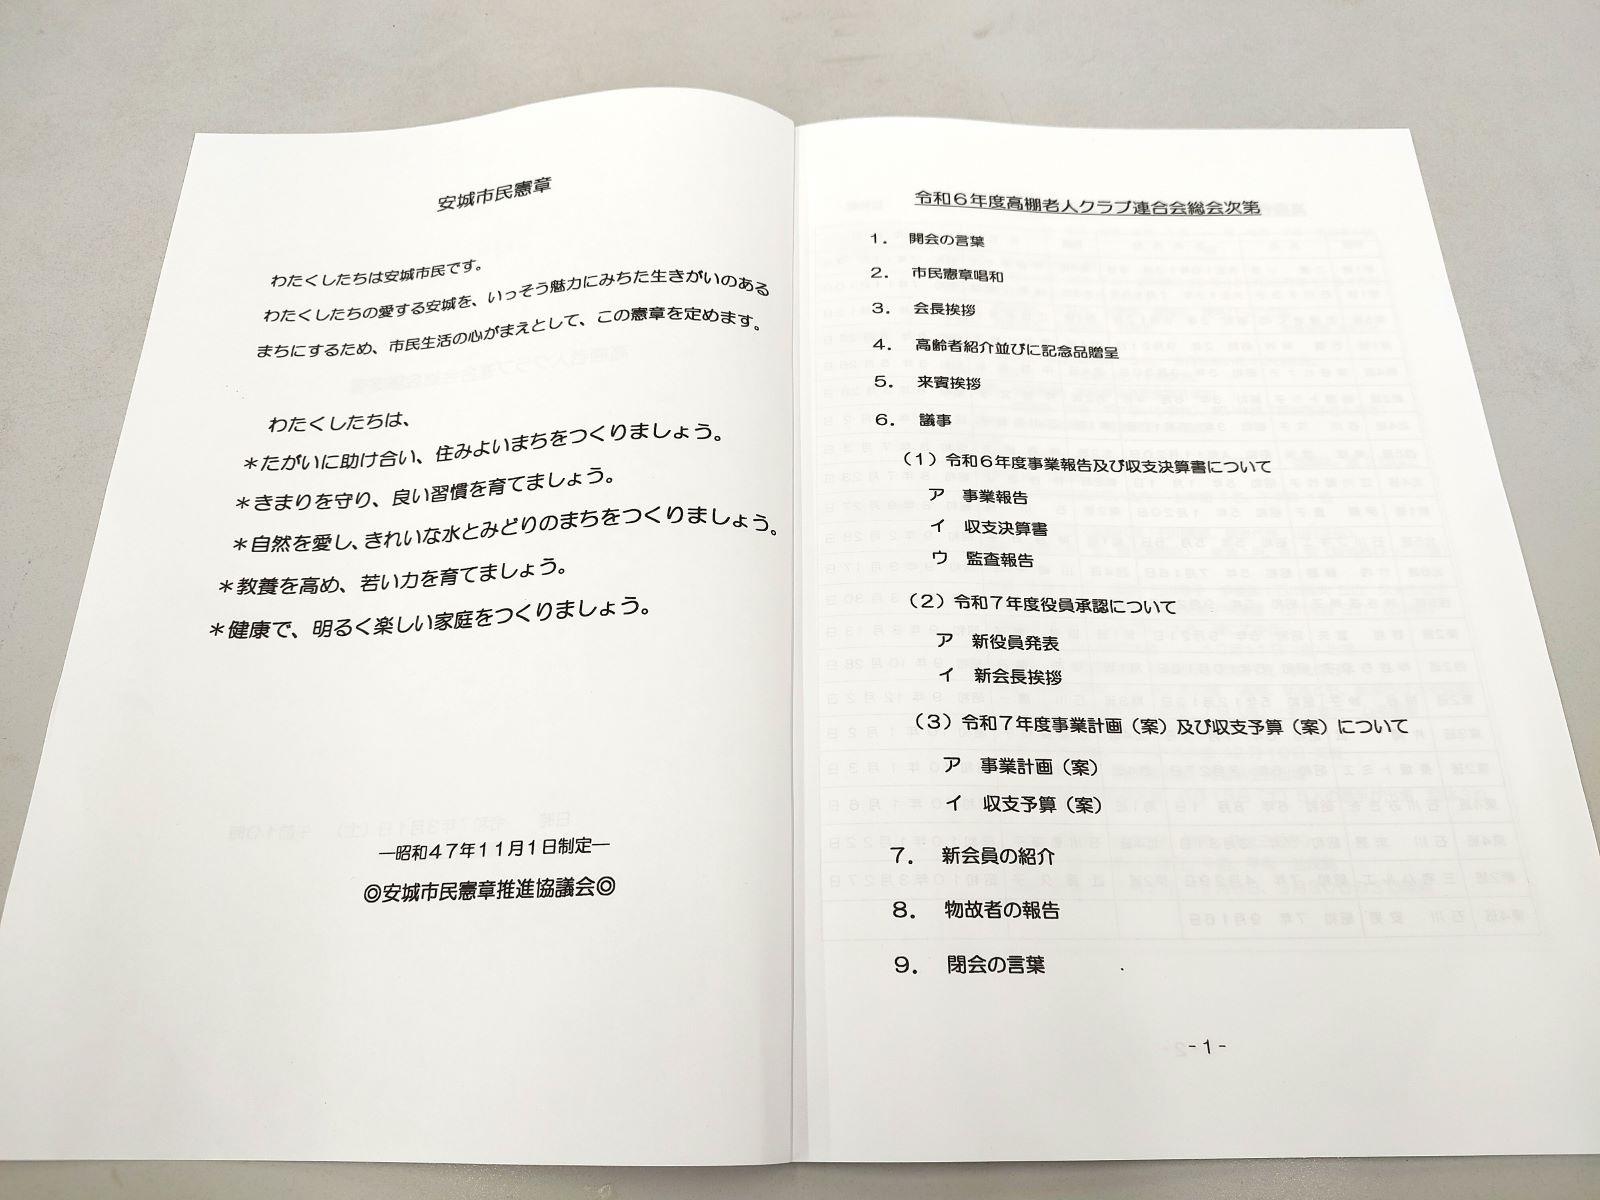 安城市民憲章
わたくしたちは安城市民です。
わたくしたちの愛する安城を、いっそう魅力にみちた生きがいのある
まちにするため、市民生活の心がまえとして、この憲章を定めます。
わたくしたちは、
＊たがいに助け合い、住みよいまちをつくりましょう。
＊きまりを守り、良い習慣を育てましょう。
＊自然を愛し、きれいな水とみどりのまちをつくりましょう。
＊教養を高め、若い力を育てましょう。
＊健康で、明るく楽しい家庭をつくりましょう。
―昭和４７年１１月１日制定―
◎安城市民憲章推進協議会◎
令和６年度高棚老人クラブ連合会総会次第
１．　開会の言葉
２．　市民憲章唱和
３．　会長挨拶
４．　高齢者紹介並びに記念品贈呈
５．　来賓挨拶
６．　議事
（１）令和６年度事業報告及び収支決算書について
ア　事業報告
イ　収支決算書
ウ　監査報告
（２）令和７年度役員承認について
ア　新役員発表
イ　新会長挨拶
（３）令和７年度事業計画（案）及び収支予算（案）について
ア　事業計画（案）
イ　収支予算（案）
７．　新会員の紹介
８．　物故者の報告
９．　閉会の言葉
-１-